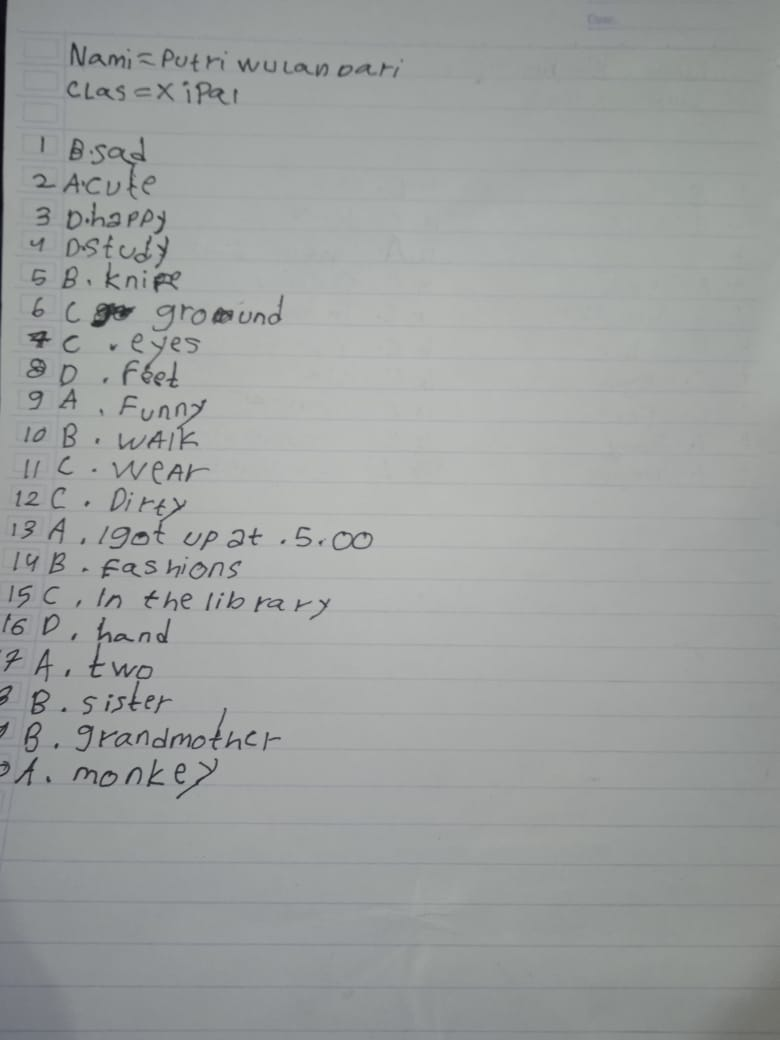 Nami = Putri wulandari
Clas = X iPa1
1 B. sad
2 A. cute
3 D. happy
4 D. Study
5 B. knife
6 C ground
7 C . eyes
8 D . feet
9 A . Funny
10 B . WAlK
11 C . WeAr
12 C . Dirty
13 A . I got up at . 5.00
14 B . fashions
15 C . In the library
16 D . hand
7 A . two
8 B . sister
9 B . grandmother
0 A . monkey